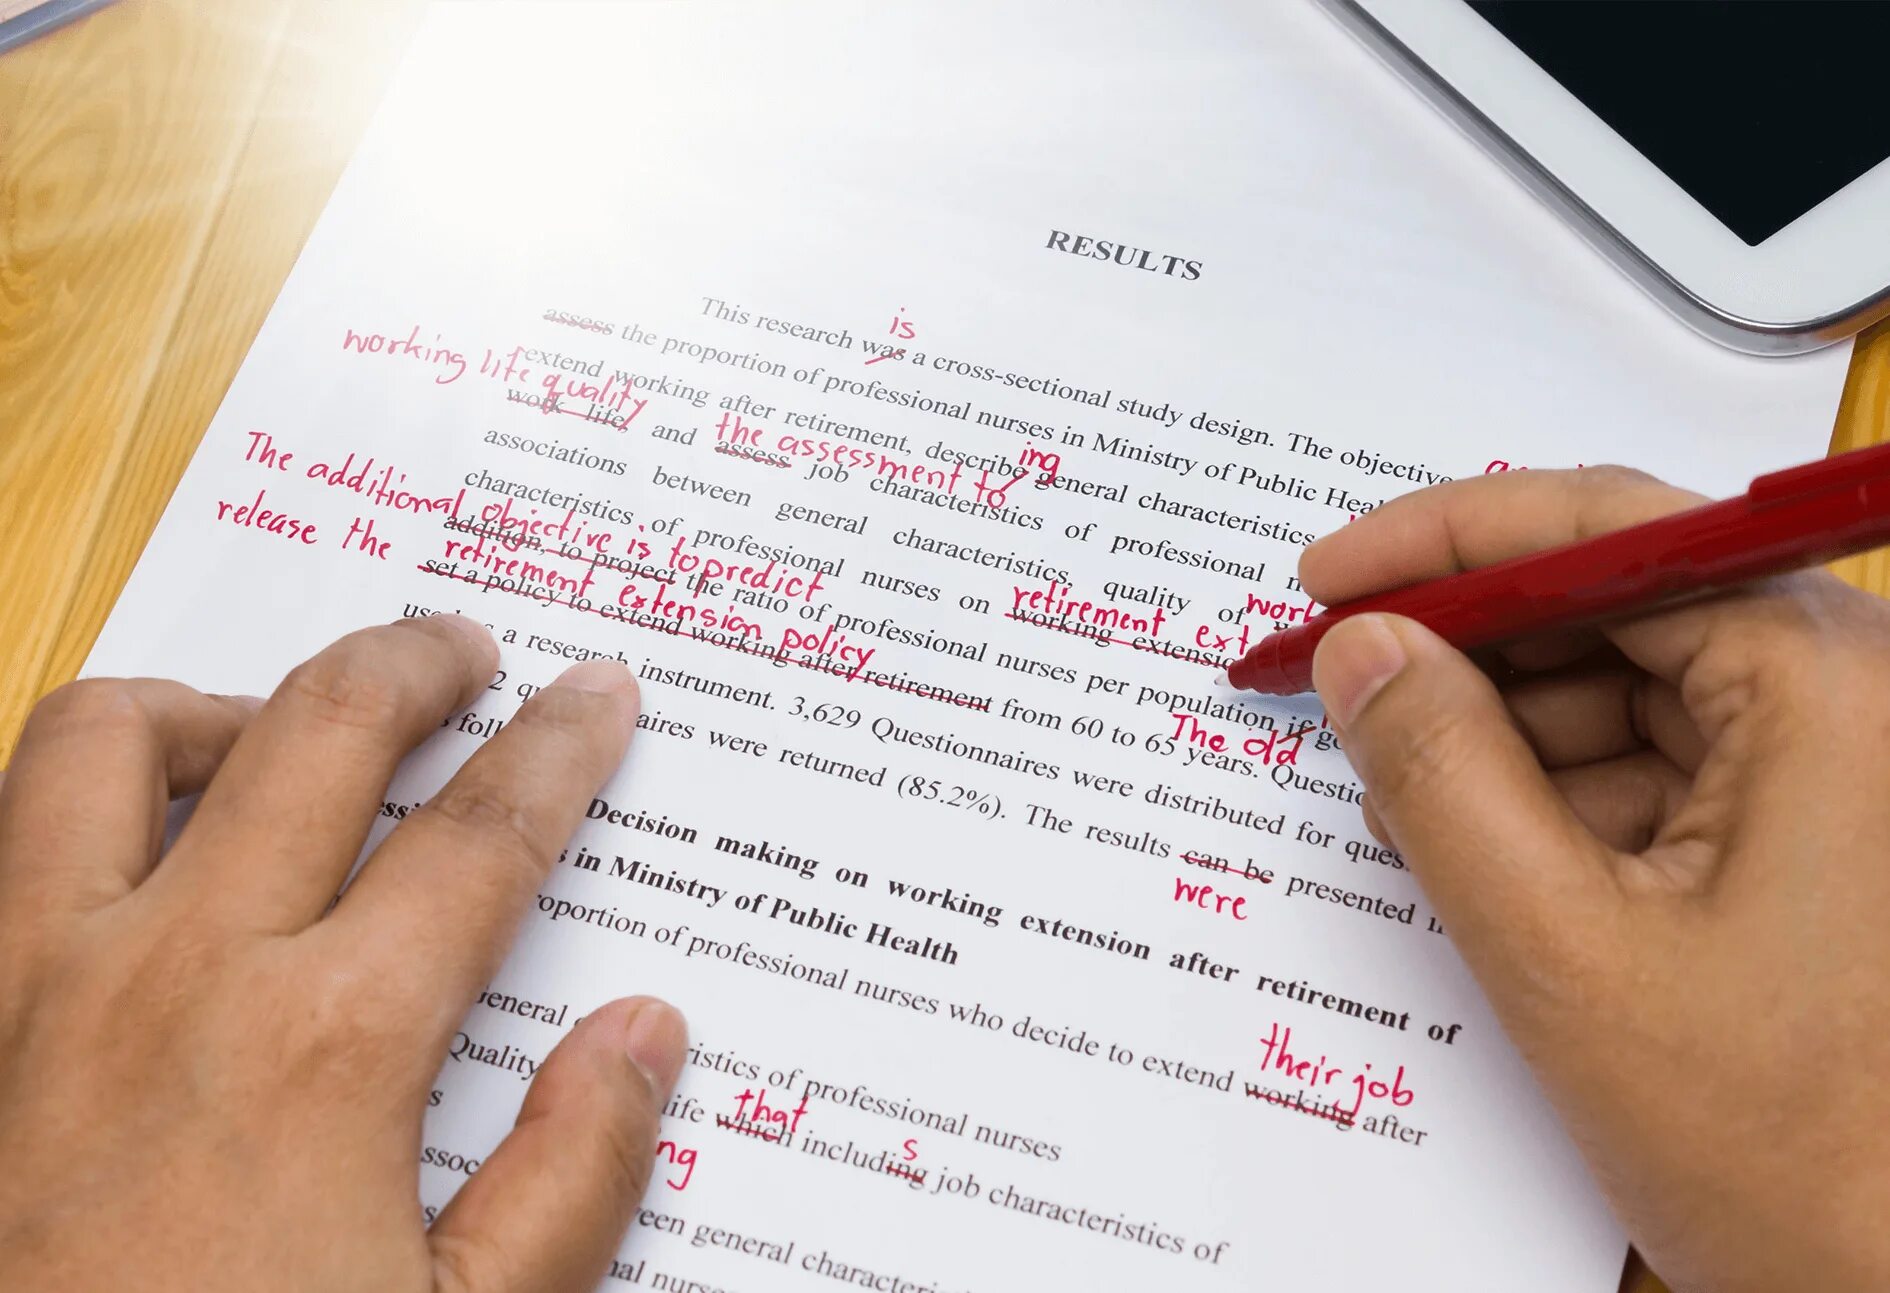 RESULTS
is
This research was a cross-sectional study design. The objective
assess the proportion of professional nurses in Ministry of Public Hea
working life quality
extend working after retirement, describe general characteristics
ing
work life, and assess job characteristics of professional
the assessment to
associations between general characteristics, quality of
work
The additional objective is to predict
characteristics of professional nurses on working extensio
retirement ext
addition, to project the ratio of professional nurses per population if go
release the retirement extension policy
set a policy to extend working after retirement from 60 to 65 years. Questio
The old
a research instrument. 3,629 Questionnaires were distributed for ques
2 qu aires were returned (85.2%). The results can be presented
were
s foll
Decision making on working extension after retirement of
s in Ministry of Public Health
oportion of professional nurses who decide to extend working after
their job
General ristics of professional nurses
Quality life which including job characteristics of
that
s
ng
assoc een general characteris
nal nurs